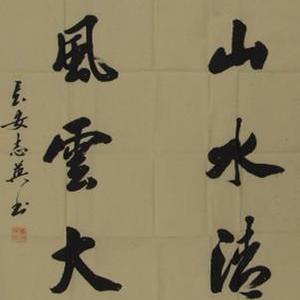 山水清
風雲大
長安志英书